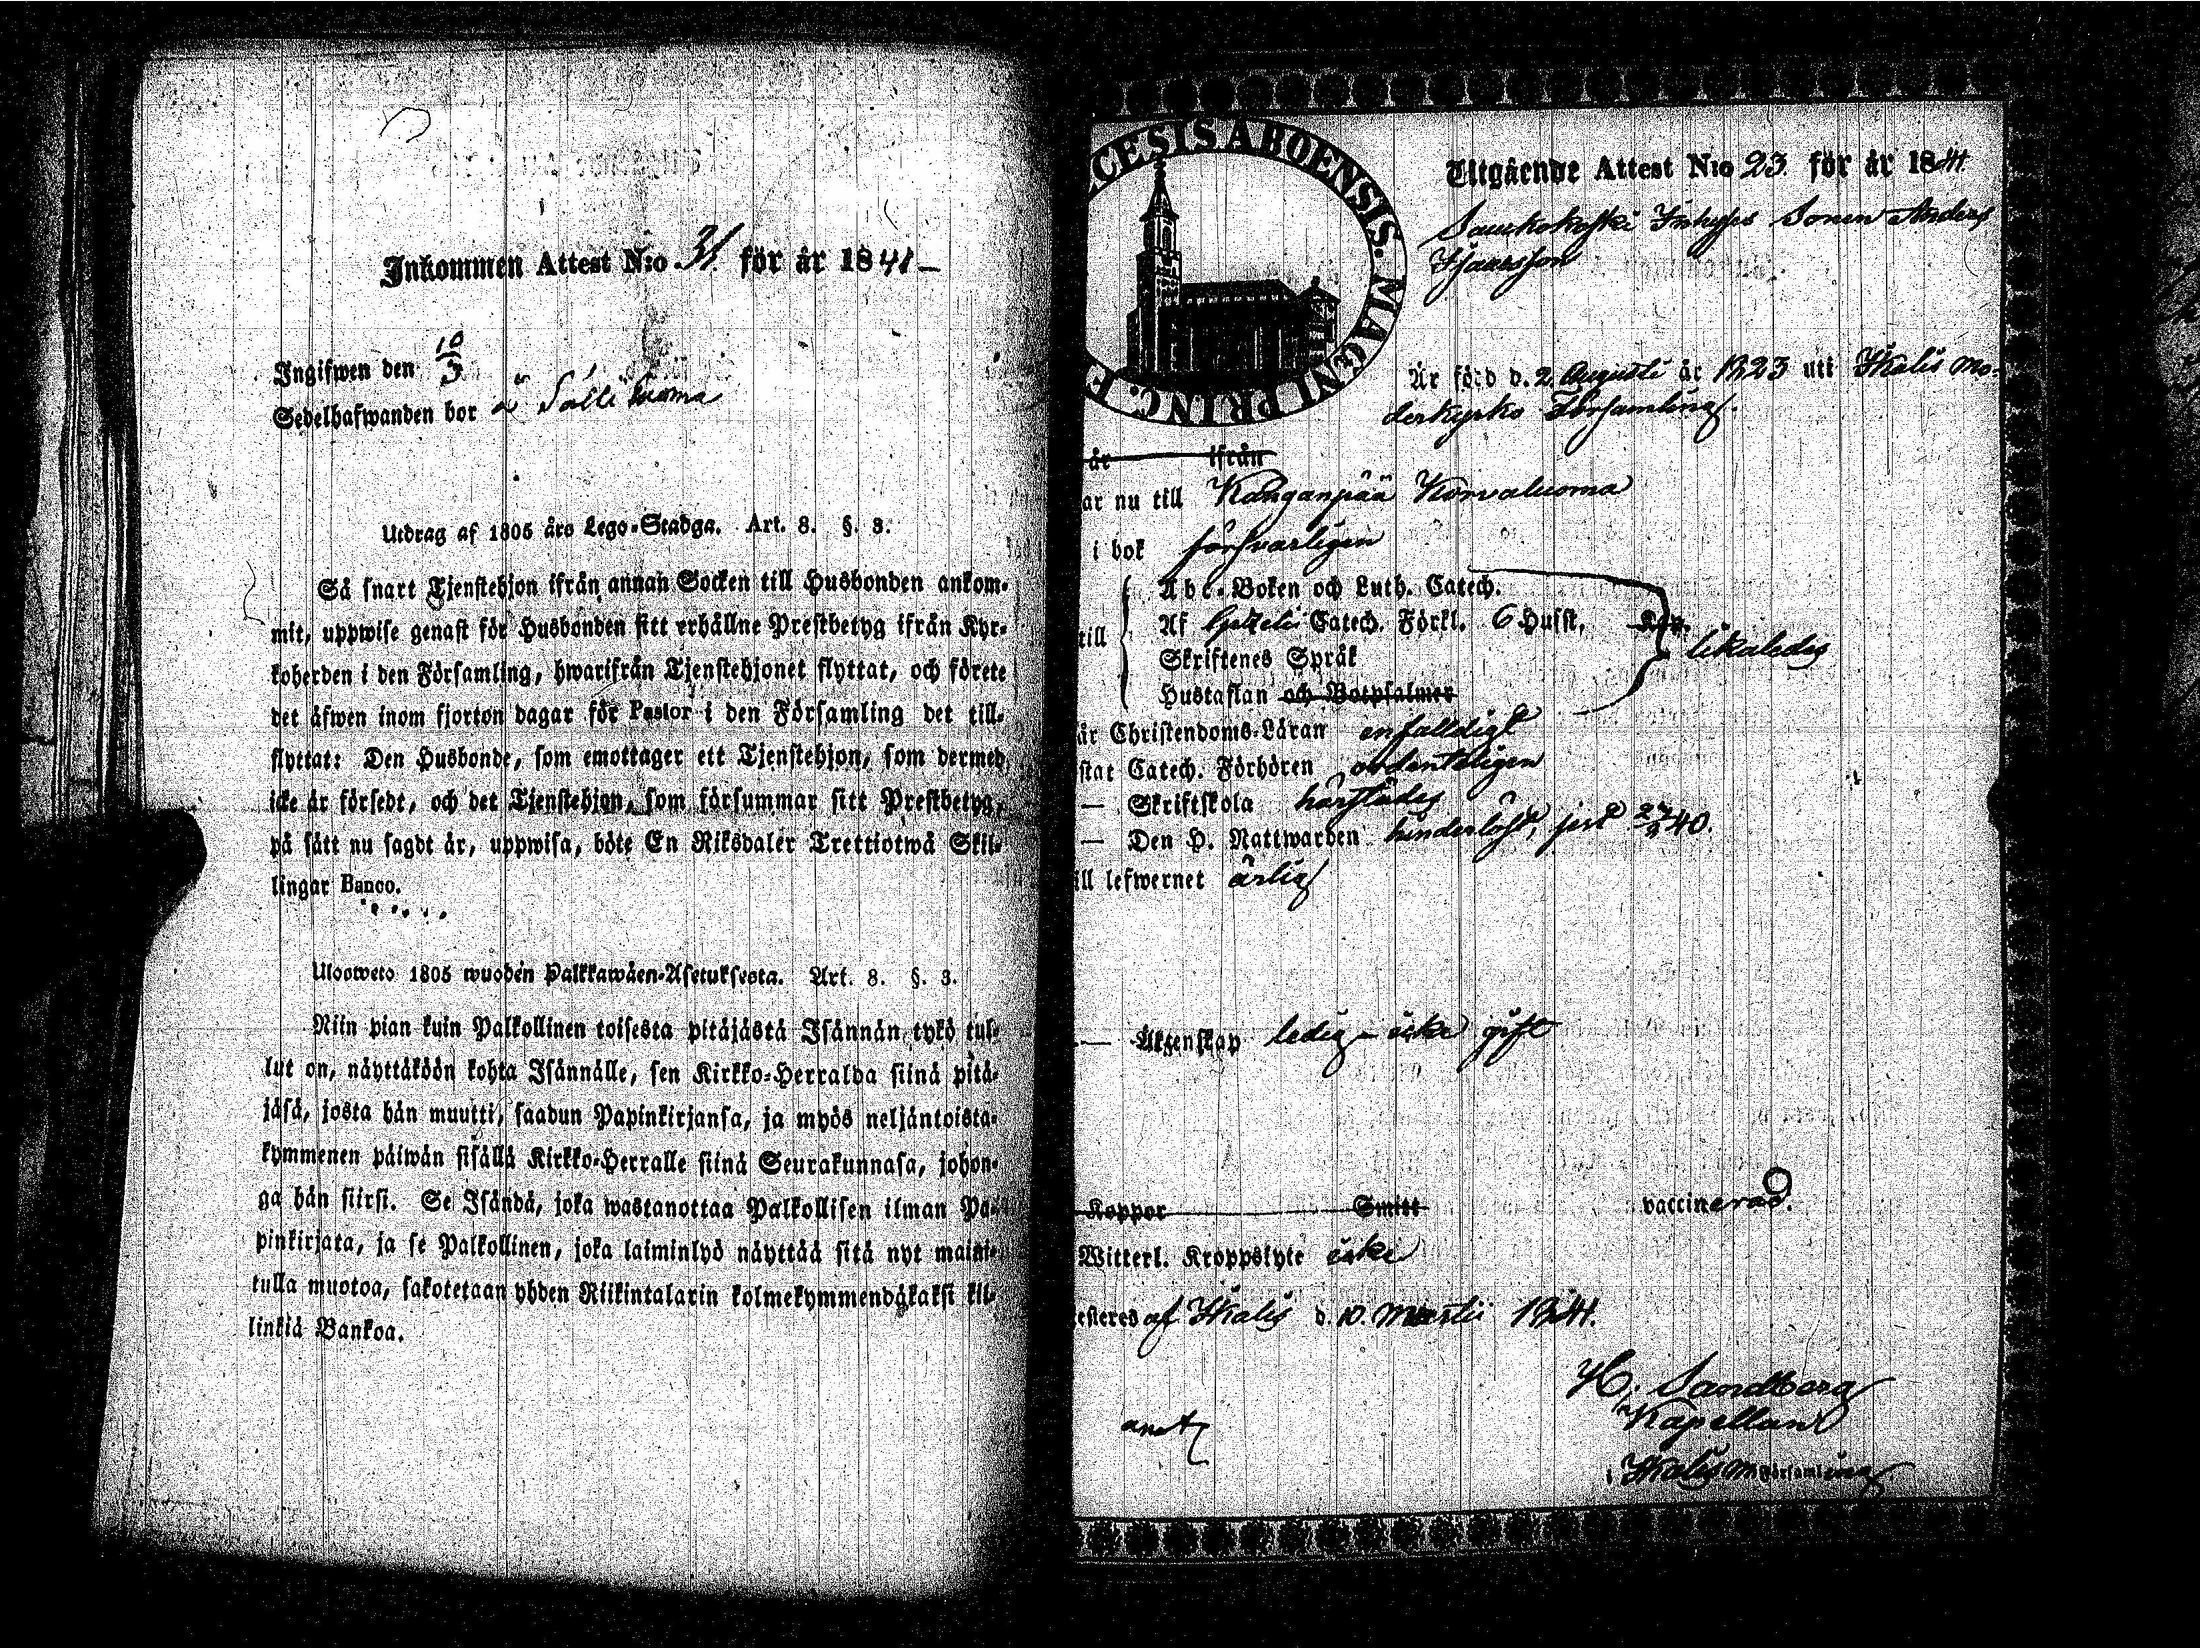 Inkommen Attest N:o 31. för år 1841 –
Ingifwen den 10/3
Sedelhafwanden bor å
Utdrag af 1805 års Lego-Stadga. Art. 8. §. 3.
Så snart Tjenstehjon ifrån annan Socken till Husbonden ankom-
mit, uppwise genast för Husbonden sitt erhållne Prestbetyg ifrån Kyr-
koherden i den Församling, hwarifrån Tjenstehjonet flyttat, och förete
det äfwen inom fjorton dagar för Pastor i den Församling det till-
flyttat: Den Husbonde, som emottager ett Tjenstehjon, som dermed
icke är försedt, och det Tjenstehjon, som försummar sitt Prestbetyg,
på sätt nu sagdt är, uppwisa, böte En Riksdaler Trettiotwå Skil-
lingar Banco.
Ulosweto 1805 wuoden Palkkawäen-Asetuksesta. Art. 8. §. 3.
Niin pian kuin Palkollinen toisesta pitäjästä Isännän tykö tul-
lut on, näyttäköön kohta Isännälle, sen Kirkko-Herralda siinä pitä-
jäsä, josta hän muutti, saadun Papinkirjansa, ja myös neljäntoista-
kymmenen päiwän sisällä Kirkko-Herralle siinä Seurakunnasa, johon-
ga hän siirsi. Se Isändä, joka wastanottaa Palkollisen ilman Pa-
pinkirjata, ja se Palkollinen, joka laiminlyö näyttää sitä nyt maini-
tulla muotoa, sakotetaan yhden Riikintalarin kolmekymmendäkaksi kil-
linkiä Bankoa.
CESIS ABOENSIS. MAGNI PRINC. F
Utgående Attest N:o 23 för år 1841.
Sauskokoski Inhyses Sonen Anders
Isaaksson
Är född d. 2 Augusti år 1823 uti Ikalis Mo-
derkyrko Församling.
år ifrån
ar nu till Kanganpää Korvaluoma
i bok försvarligen
Abc-Boken och Luth. Catech.
till Af Gezelii Catech. Förkl. 6 Husst, Kap. likaledes
Skriftenes Språk
Hustaflan och Botpsalmer
är Christendoms-Läran enfalldigt
stat Catech. Förhören ordenteligen
— Skriftskola härstädes
— Den H. Nattwarden hinderlöst, sist 27/9 40.
ill lefwernet ärlig
— Äktenskap ledig – icke gift
Koppor Smitt vaccinerad.
Witterl. Kroppslyte icke
esteres af Ikalis d. 10. Martii 1841.
H. Sandberg
Kapellan
i Ikalis M Församling